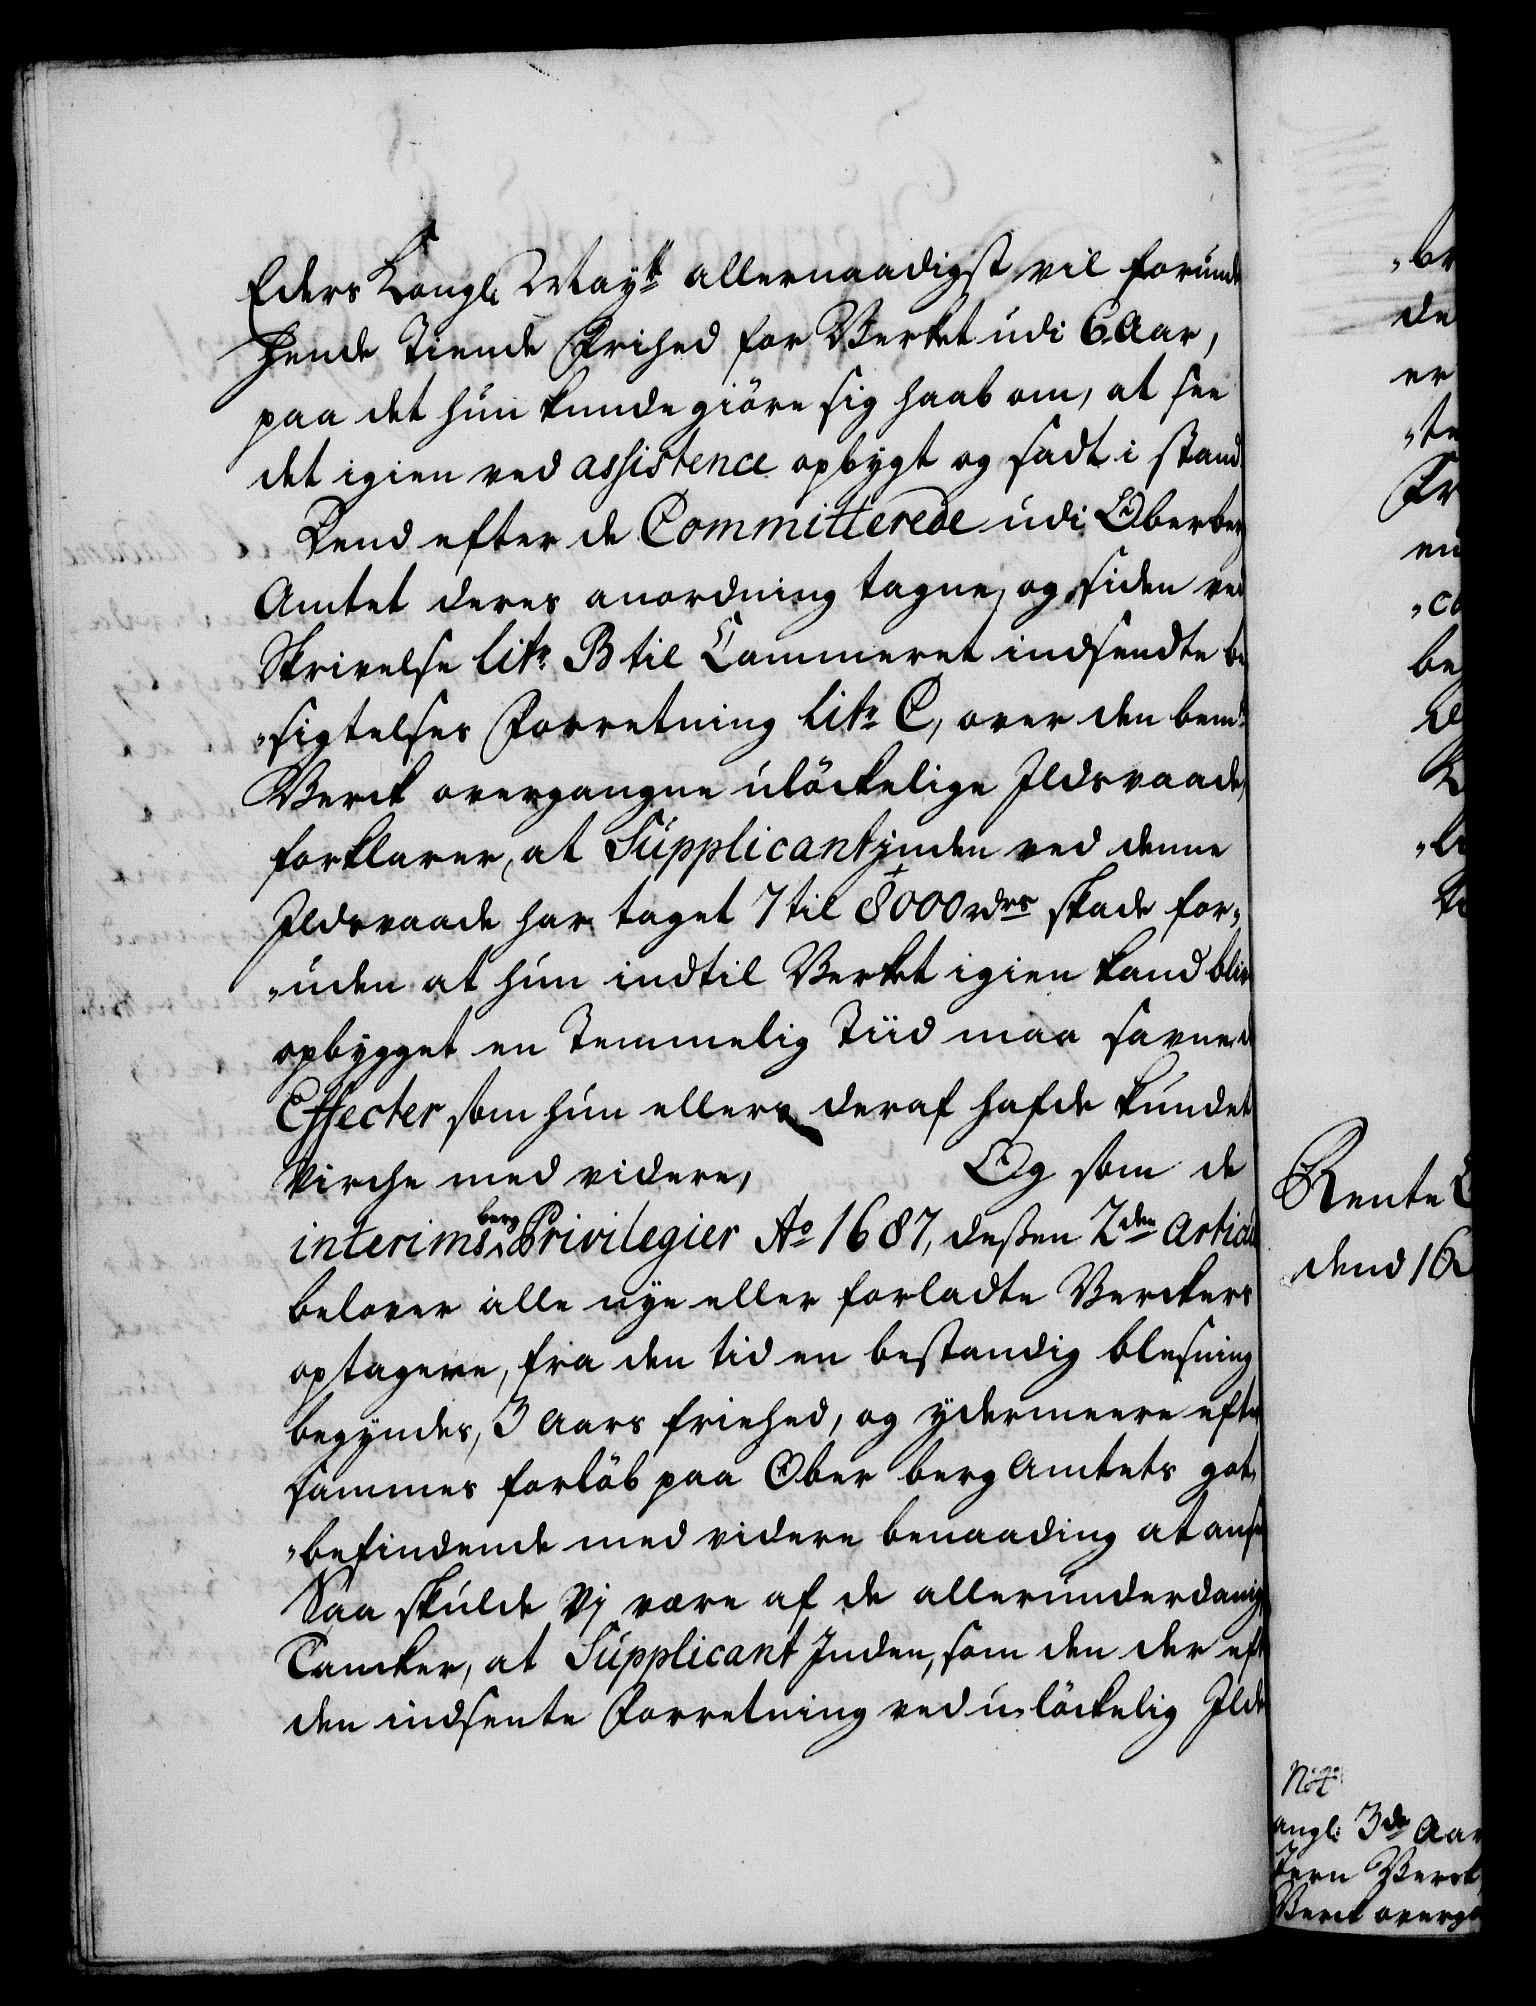 Eders Kongl: Mayt allernaadigst vil forunde
hende Tiende Frihed for Verket udi 6 Aar,
paa det hun kunde giöre sig haab om, at see
det igien ved assistence opbygt og sadt i stand
Dend efter de Committerede udi Oberberg
Amtet deres anordning tagne, og siden ved
Skrivelse litr B til Cammeret indsendte be
„sigtelses Forretning litr C, over den bemt
Verck overgangne ulöckelige Ildsvaade,
forklarer, at Supplicantjnden ved denne
Ildsvaade har taget 7 til 8000 rdrs skade for„
„uden at hun indtil Verket igien kand blive
opbygget en Temmelig Tiid maa savne de
Effecter som hun ellers deraf hafde kundet
virche med videre, Og som de
interims berg Privilegier Ao 1687, deßen 2den Articul
belover alle nye eller forladte Verckers
optagere, fra den tid en bestandig blesning
begyndes, 3 Aars friehed, og ydermeere efter
sammes forlöb paa Ober berg Amtets got„
„befindende med videre benaading at anse
Saa skulde Vj være af de allerunderdanigste
Tancker, at Supplicant Inden, som den der efter
den indsente Forretning ved u„löckelig Ilds
„br
de
er
„te
Fr
en
„co
be
Rente
dend 16
Not:
angl: 3de Aar
Jern Verck
Verck overga